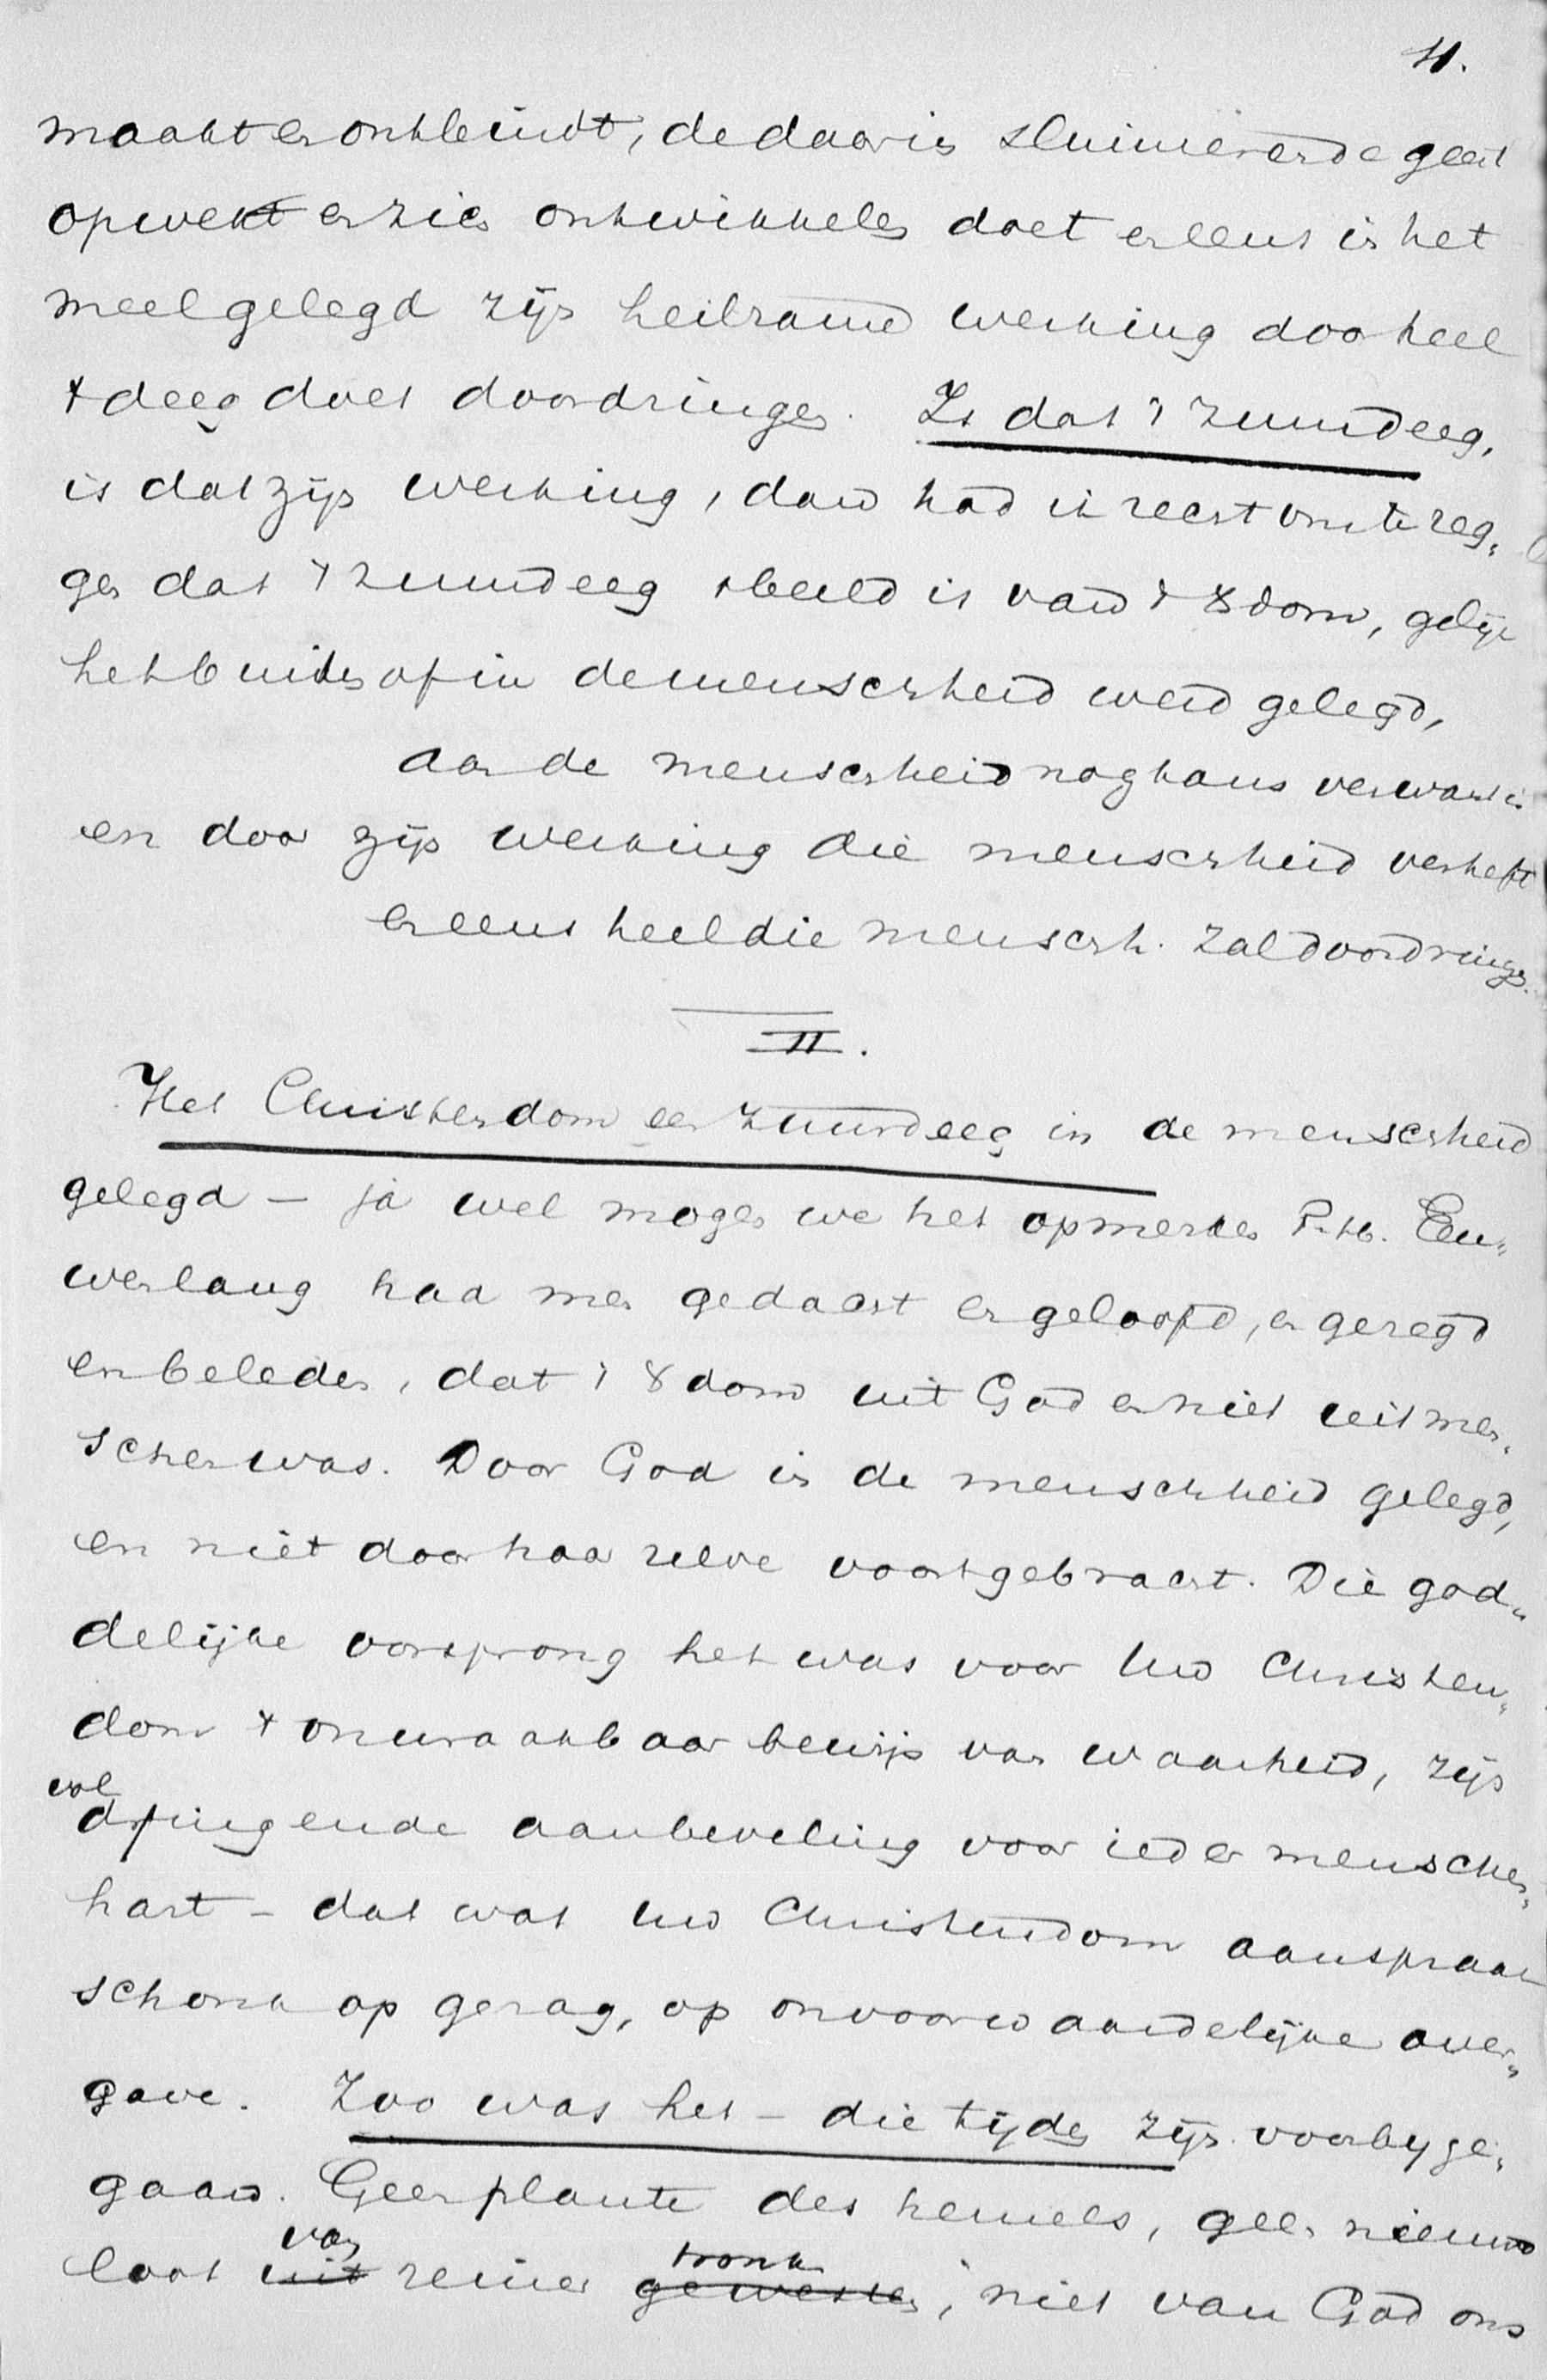 11.
maakt en ontbindt, de daarin sluimerende geest
opwekt en zich ontwikkelen doet en eens in het
meel gelegd zijn heilzame werking door heel
't deeg doet doordringen. Is dat 't zuurdeeg,
is dat zijn werking, dan had ik recht om te zeg„
gen dat 't zuurdeeg 't beeld is van 't Xdom, gelijk
het buiten af in de menschheid werd gelegd,
aan de menschheid nogthans verwant is
en door zijn werking die menschheid verheft
en eens heel die mensch. zal doordringen.
II.
Het Christendom een zuurdeeg in de menschheid
gelegd – ja wel mogen we het opmerken P. H. Eeu„
wen lang had men gedacht en geloofd, en gezegd
en beleden, dat 't Xdom uit God en niet uit men„
schen was. Door God in de menschheid gelegd,
en niet door haar zelve voortgebracht. Die god„
delijke oorsprong het was voor uw Christen„
dom 't onwraakbaar bewijs van waarheid, zijn
wel dringende aanbeveling voor ieder menschen„
hart – dat wat uw Christendom aanspraak
schonk op gezag, op onvoorwaardelijke over„
gave. Zoo was het – die tijden zijn voorbij ge„
gaan. Geen plante des hemels, geen nieuwe
loot uit van reiner gewesten tronk, niet van God ons